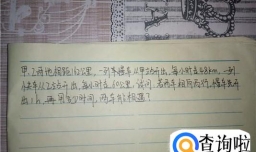 甲、乙两地相距162公里,一列慢车从甲站开出,每小时走48km,一列
快车从乙站开出,每小时走60公里,试问:若两车相向而行,慢车先开
出1h,再用多少时间,两车才能相遇?
查询啦